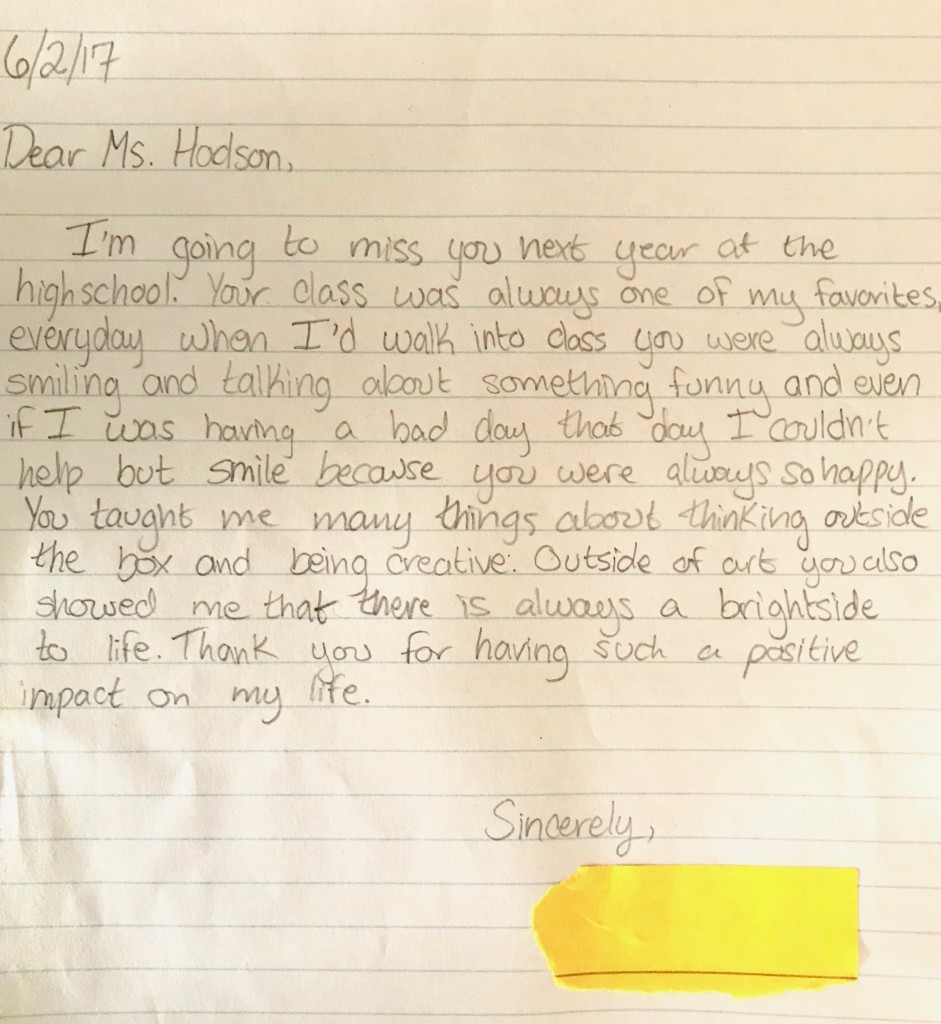 6/2/17
Dear Ms. Hodson,
I'm going to miss you next year at the
highschool. Your class was always one of my favorites,
everyday when I'd walk into class you were always
smiling and talking about something funny and even
if I was having a bad day that day I couldn't
help but smile because you were always so happy.
You taught me many things about thinking outside
the box and being creative. Outside of art you also
showed me that there is always a brightside
to life. Thank you for having such a positive
impact on my life.
Sincerely,